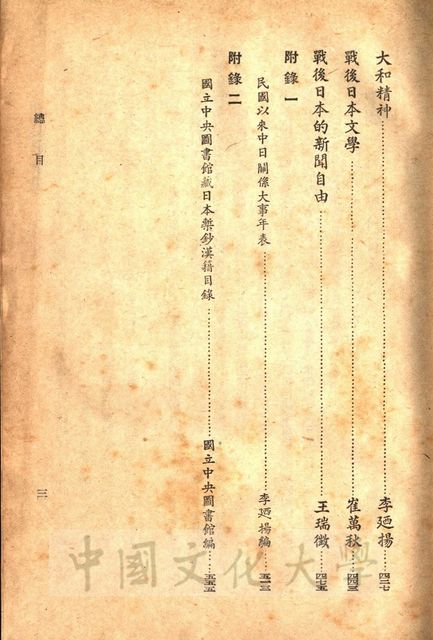 大和精神 李廼揚 四二七
戰後日本文學 崔萬秋 四四三
戰後日本的新聞自由 王瑞徵 四七五
附錄一
民國以來中日關係大事年表 李廼揚編 五一三
附錄二
國立中央圖書館藏日本槧鈔漢籍目錄 國立中央圖書館編 五五五
總目
三
中國文化大學